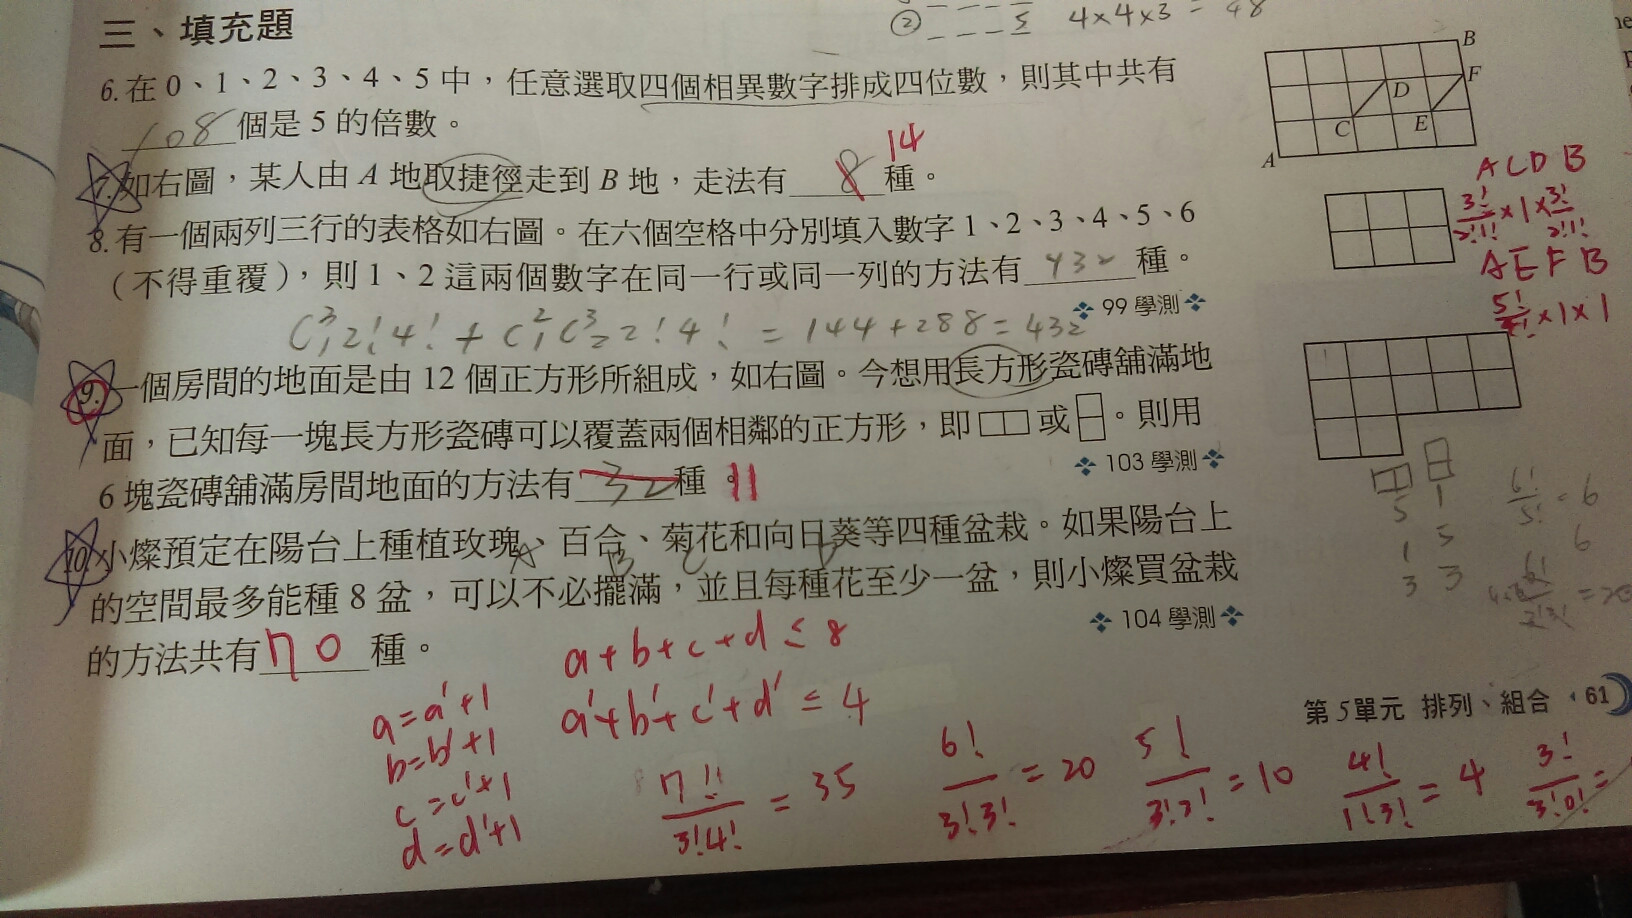 ② _ _ _ 5 4×4×3 = 48
三、填充題
6. 在 0、1、2、3、4、5 中，任意選取四個相異數字排成四位數，則其中共有
108 個是 5 的倍數。
A B C D E F
14
7. 如右圖，某人由 A 地取捷徑走到 B 地，走法有 8 種。
A C D B
3!/2!1! ×1× 3!/2!1!
A E F B
5!/4! ×1×1
8. 有一個兩列三行的表格如右圖。在六個空格中分別填入數字 1、2、3、4、5、6
（不得重覆），則 1、2 這兩個數字在同一行或同一列的方法有 432 種。
❖ 99 學測 ❖
C³₁2!4! + C²₁C³₂2!4! = 144+288=432
9. 一個房間的地面是由 12 個正方形所組成，如右圖。今想用長方形瓷磚舖滿地
面，已知每一塊長方形瓷磚可以覆蓋兩個相鄰的正方形，即 或 。則用
6 塊瓷磚舖滿房間地面的方法有 32 種。 11
❖ 103 學測 ❖
5 1
1 5
3 3
6!/5! = 6
6
10. 小燦預定在陽台上種植玫瑰、百合、菊花和向日葵等四種盆栽。如果陽台上
A B C D
的空間最多能種 8 盆，可以不必擺滿，並且每種花至少一盆，則小燦買盆栽
的方法共有 70 種。
❖ 104 學測 ❖
a+b+c+d ≤ 8
a'+b'+c'+d' ≤ 4
a=a'+1
b=b'+1
c=c'+1
d=d'+1
7!/3!4! = 35
6!/3!3! = 20
5!/3!2! = 10
4!/1!3! = 4
3!/3!0! =
第 5 單元 排列、組合 · 61